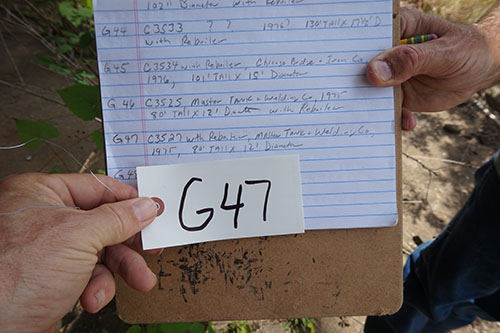 102' Diameter with Reboiler
G44 C3533 ? ? 1976? 130' Tall X 17½' D
with Reboiler
G45 C3534 with Reboiler, Chicago Bridge + Iron Co
1976, 101' Tall X 15' Diameter
G46 C3525 Master Tank + Welding Co, 1975
80' Tall X 12' with Reboiler
G47 C3527 with Reboiler, Master Tank + Welding Co,
1975, 80' Tall X 12' Diameter
G47